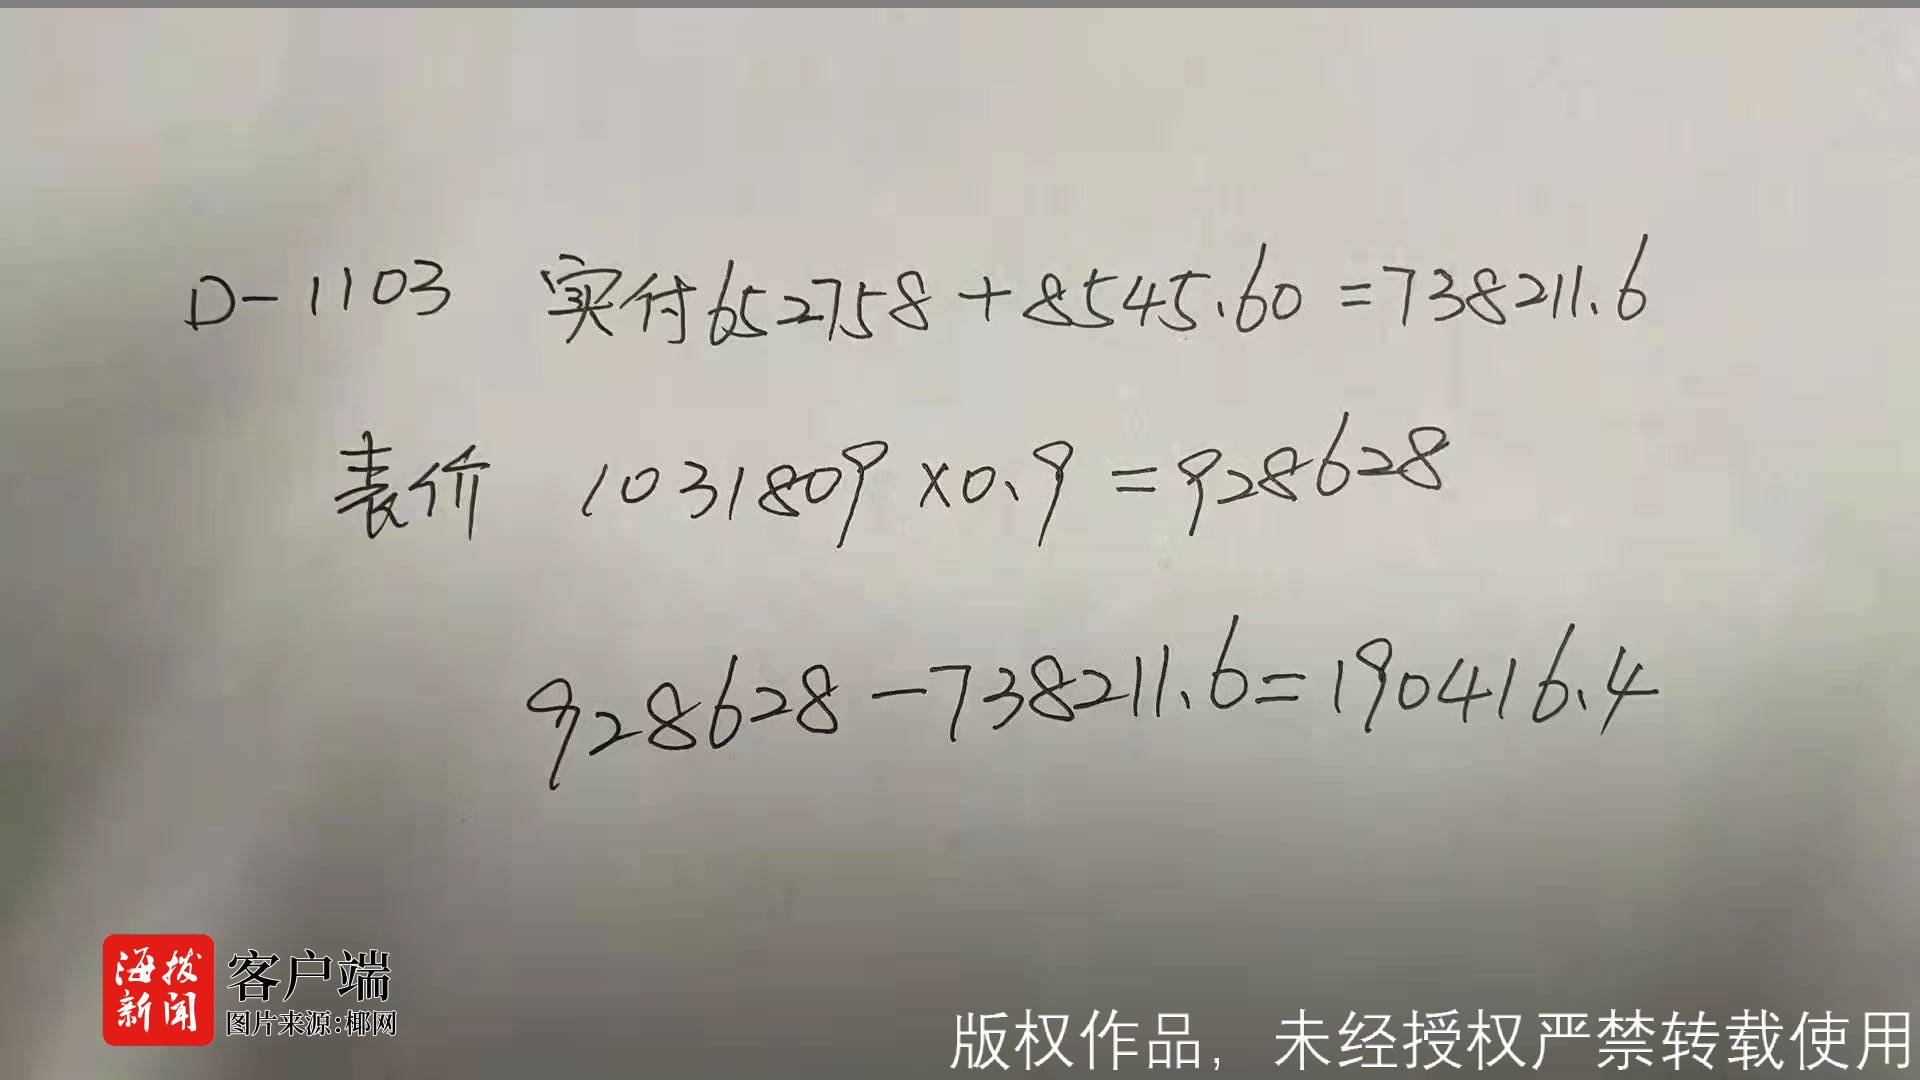 D-1103 实付652758+8545.60=738211.6
表价 1031809×0.9=928628
928628-738211.6=190416.4
海拔新闻 客户端
图片来源:椰网
版权作品，未经授权严禁转载使用